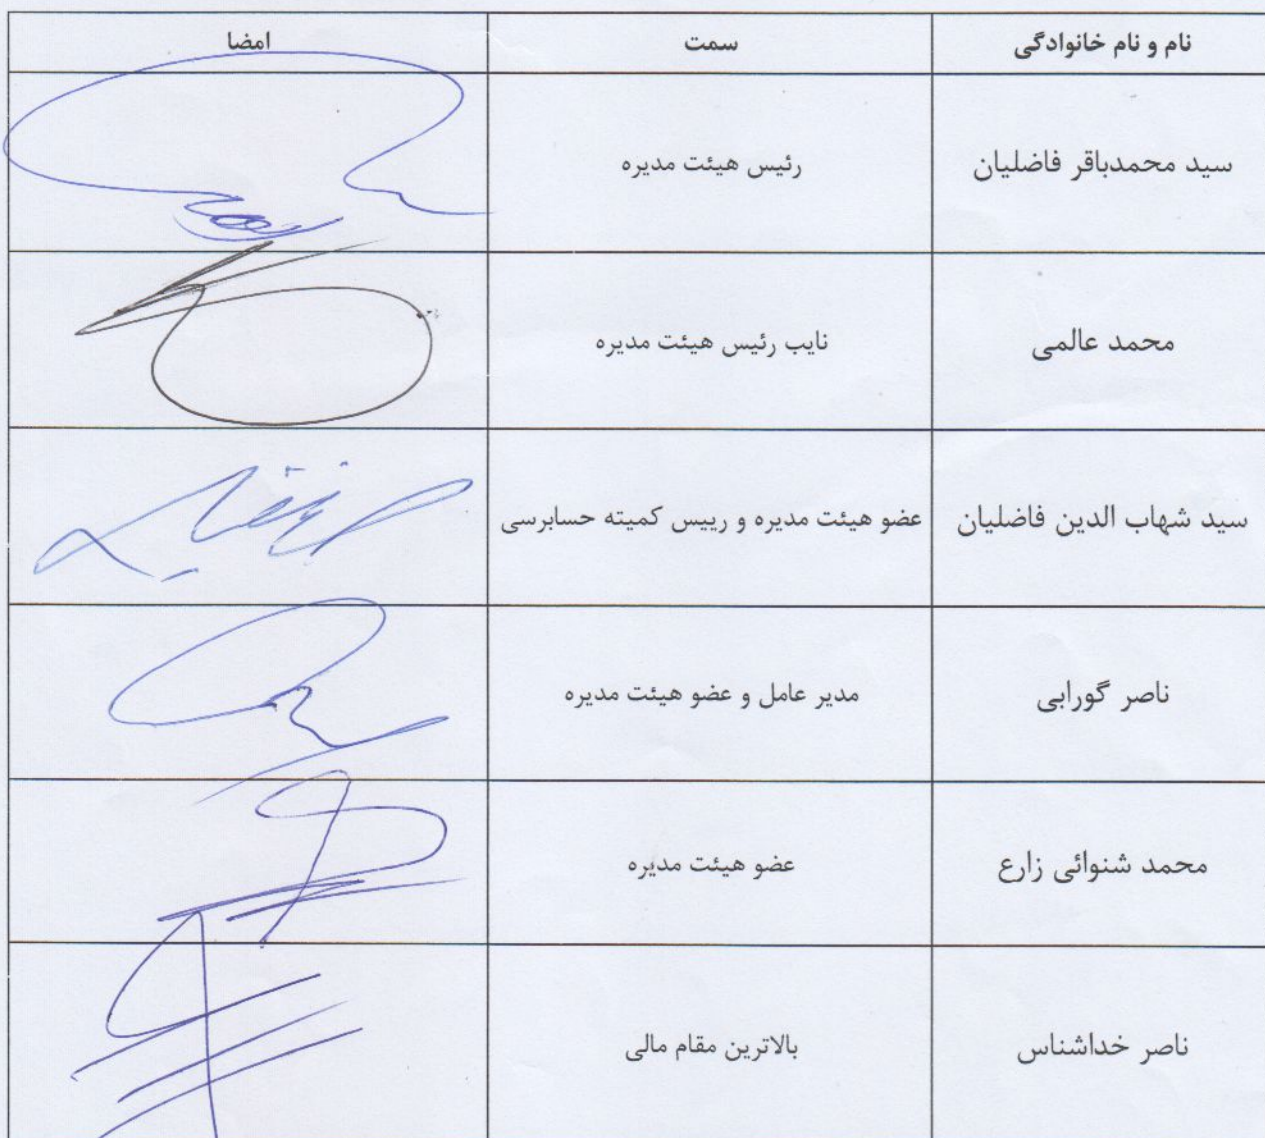 نام و نام خانوادگی سمت امضا
سید محمدباقر فاضلیان رئیس هیئت مدیره
محمد عالمی نایب رئیس هیئت مدیره
سید شهاب الدین فاضلیان عضو هیئت مدیره و رییس کمیته حسابرسی
ناصر گورابی مدیر عامل و عضو هیئت مدیره
محمد شنوائی زارع عضو هیئت مدیره
ناصر خداشناس بالاترین مقام مالی